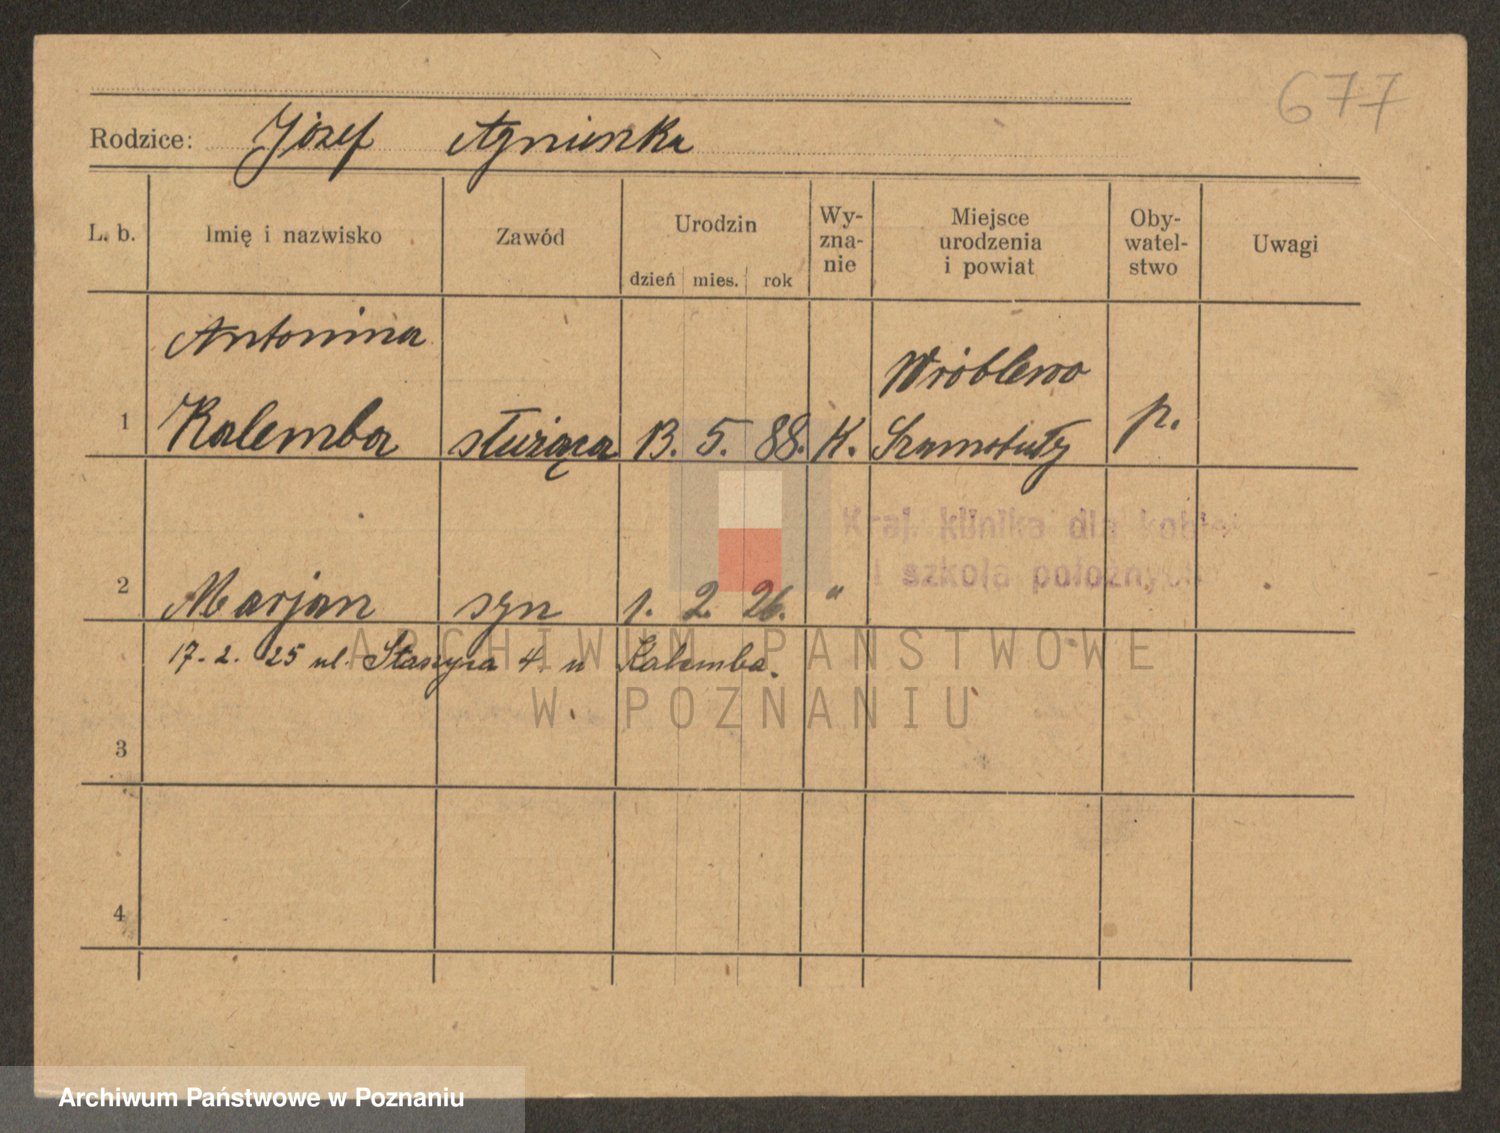 677
Rodzice: Józef Agnieszka
L. b. Imię i nazwisko Zawód Urodzin dzień mies. rok Wy-zna-nie Miejsce urodzenia i powiat Oby-watel-stwo Uwagi
Antonina
Wróblewo
1 Kalemba służąca 13. 5. 88. K. Szamotuły p.
Kraj. klinika dla kobiet
i szkoła położnych
2 Marjan syn 1. 2. 26. "
17. 2. 25 ul. Staszyca 4. u Kalemba.
ARCHIWUM PAŃSTWOWE
W POZNANIU
3
4
Archiwum Państwowe w Poznaniu